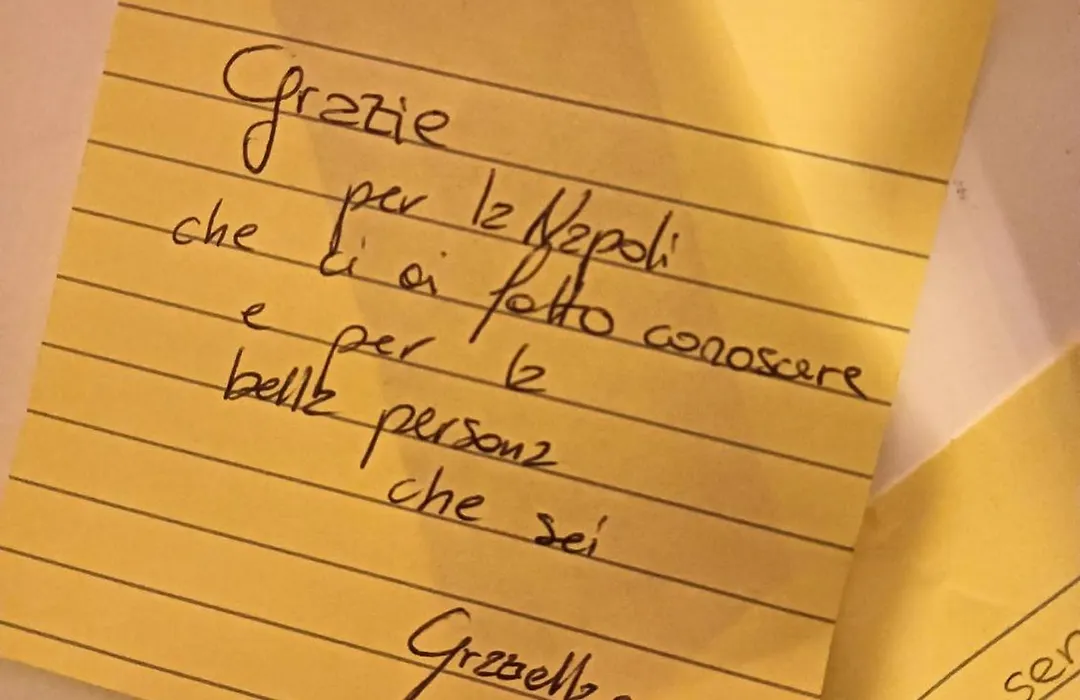 Grazie
per la Napoli
che ci ai fatto conoscere
e per la
bella persona
che sei
sen